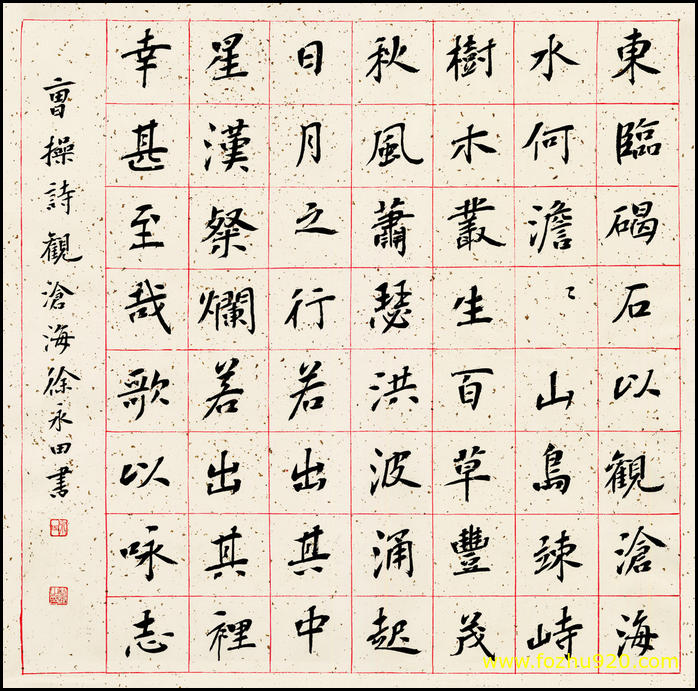 東臨碣石以觀滄海
水何澹〻山島竦峙
樹木叢生百草豐茂
秋風蕭瑟洪波涌起
日月之行若出其中
星漢粲爛若出其裡
幸甚至哉歌以咏志
曹操詩觀滄海徐永田書
www.fozhu920.com